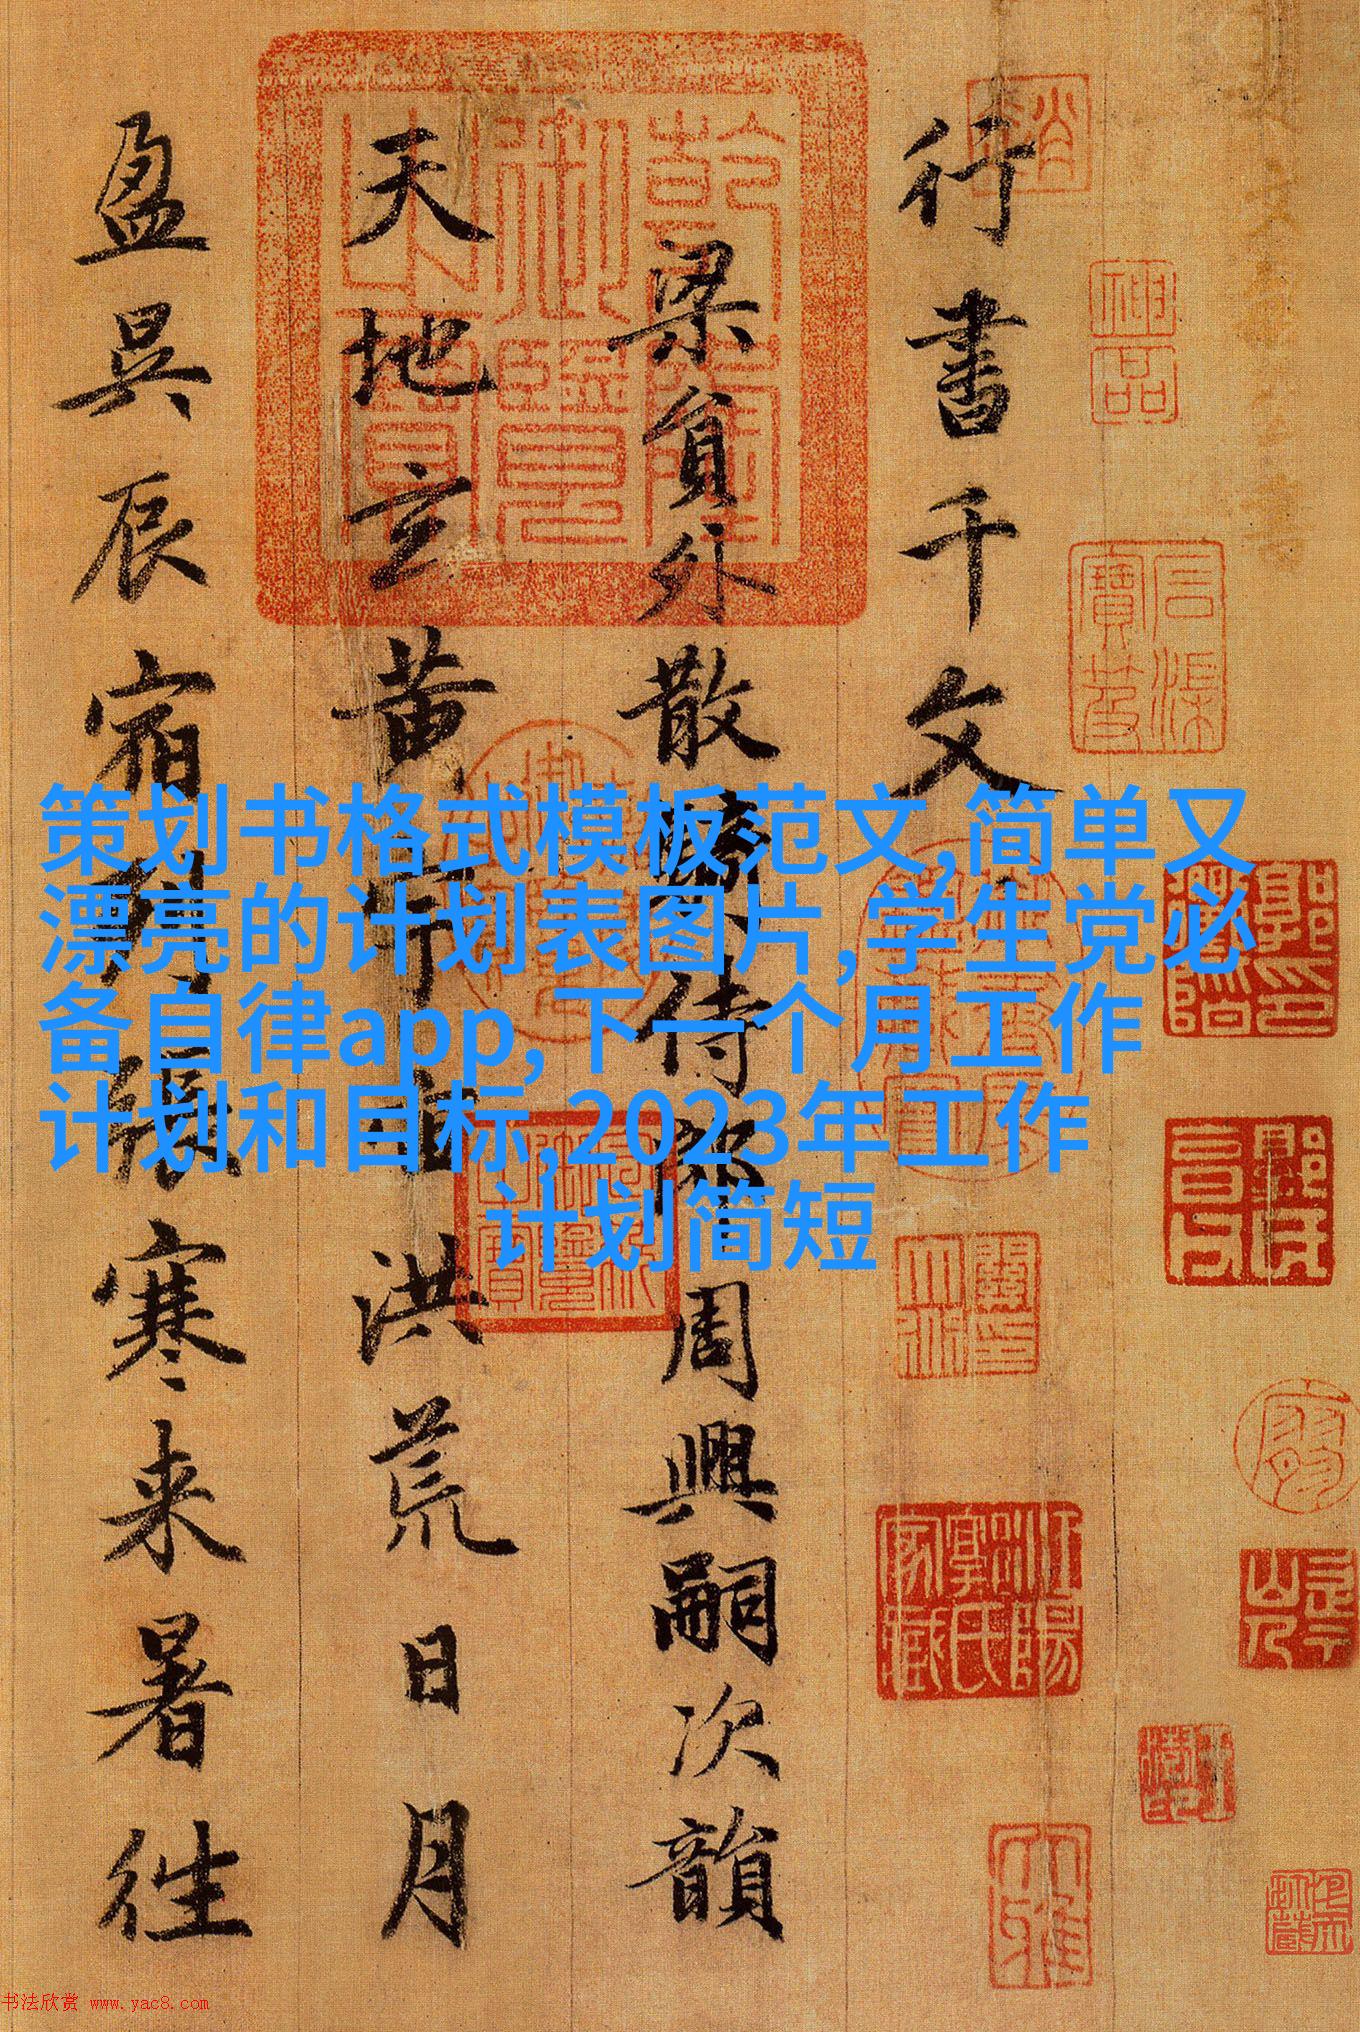 行書千文
梁員外散騎侍郎周興嗣次韻
天地玄黄宇宙洪荒日月
盈昃辰宿列張寒来暑往
策划书格式模板范文,简单又
漂亮的计划表图片,学生党必
备自律app,下一个月工作
计划和目标,2023年工作
计划简短
乾隆御覽之寶
神品
大雅
书法欣赏 www.yac8.com